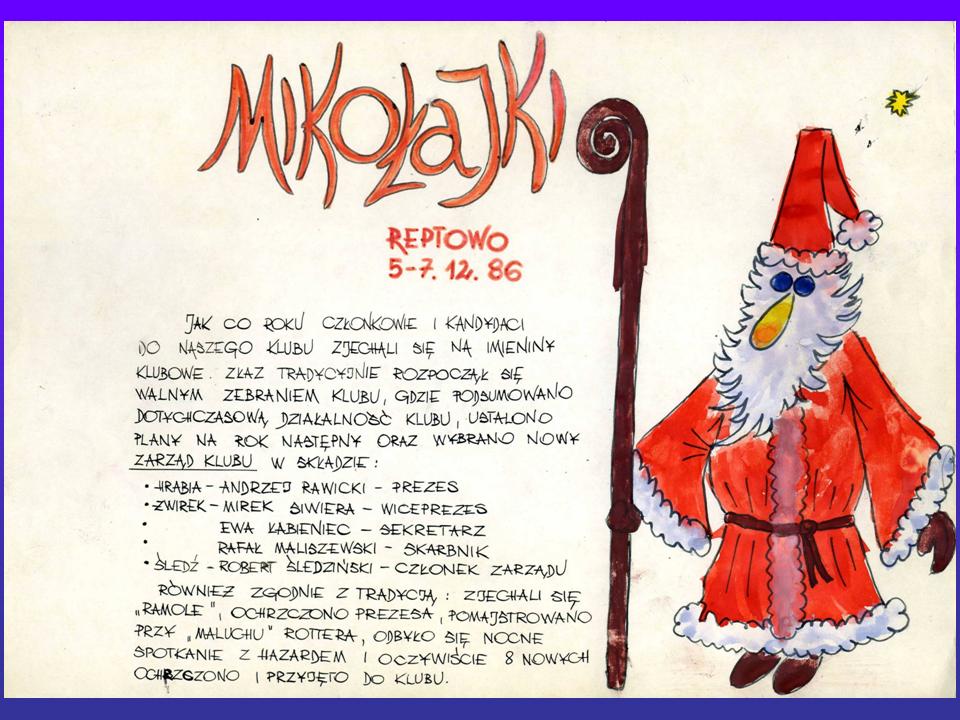 MIKOŁAJKI
REPTOWO
5-7. 12. 86
JAK CO ROKU CZŁONKOWIE I KANDYDACI
DO NASZEGO KLUBU ZJECHALI SIĘ NA IMIENINY
KLUBOWE. ZŁAZ TRADYCYJNIE ROZPOCZĄŁ SIĘ
WALNYM ZEBRANIEM KLUBU, GDZIE PODSUMOWANO
DOTYCHCZASOWĄ DZIAŁALNOŚĆ KLUBU, USTALONO
PLANY NA ROK NASTĘPNY ORAZ WYBRANO NOWY
ZARZĄD KLUBU W SKŁADZIE:
• HRABIA - ANDRZEJ RAWICKI - PREZES
• ŻWIREK - MIREK SIWIERA - WICEPREZES
• EWA ŁABIENIEC - SEKRETARZ
• RAFAŁ MALISZEWSKI - SKARBNIK
• ŚLEDŹ - ROBERT ŚLEDZIŃSKI - CZŁONEK ZARZĄDU
RÓWNIEŻ ZGODNIE Z TRADYCJĄ: ZJECHALI SIĘ
„RAMOLE", OCHRZCZONO PREZESA, POMAJSTROWANO
PRZY „MALUCHU" ROTTERA, ODBYŁO SIĘ NOCNE
SPOTKANIE Z HAZARDEM I OCZYWIŚCIE 8 NOWYCH
OCHRZCZONO I PRZYJĘTO DO KLUBU.